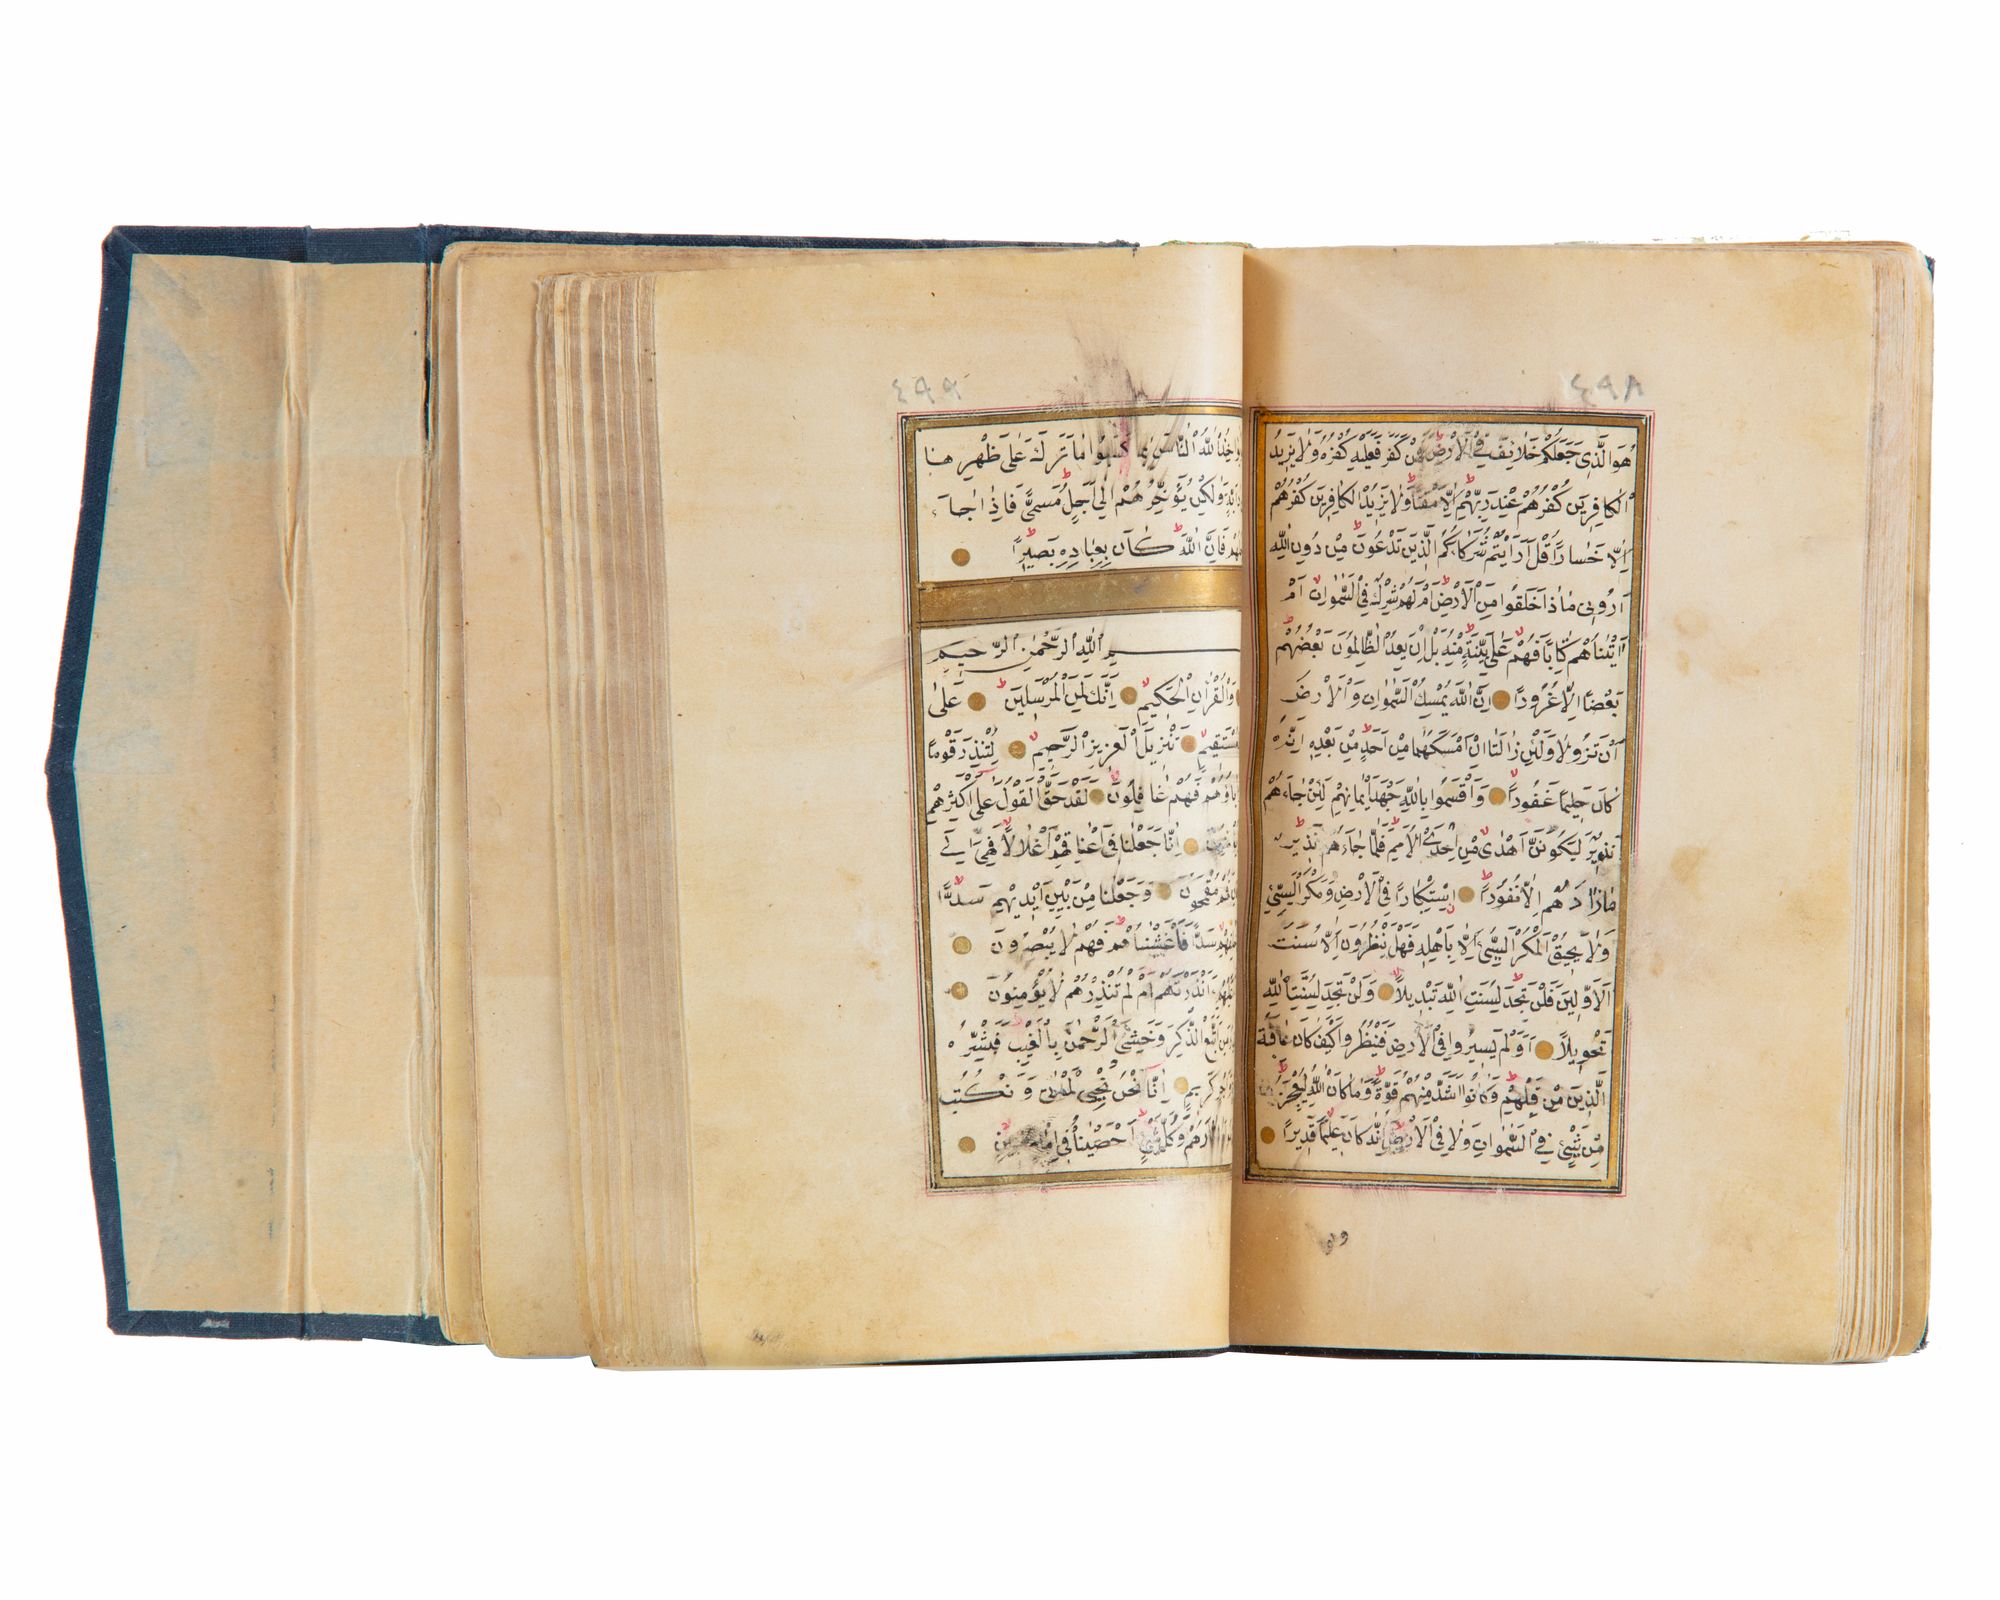 ٤٩٨
هُوَ الَّذِى جَعَلَكُمْ خَلَائِفَ فِى الْاَرْضِ فَمَنْ كَفَرَ فَعَلَيْهِ كُفْرُهُ وَلَا يَزِيدُ
الْكَافِرِينَ كُفْرُهُمْ عِنْدَ رَبِّهِمْ اِلَّا مَقْتًا وَلَا يَزِيدُ الْكَافِرِينَ كُفْرُهُمْ
اِلَّا خَسَارًا قُلْ اَرَاَيْتُمْ شُرَكَاءَكُمُ الَّذِينَ تَدْعُونَ مِنْ دُونِ اللّٰهِ
اَرُونِى مَاذَا خَلَقُوا مِنَ الْاَرْضِ اَمْ لَهُمْ شِرْكٌ فِى السَّمٰوَاتِ اَمْ
اٰتَيْنَاهُمْ كِتَابًا فَهُمْ عَلٰى بَيِّنَةٍ مِنْهُ بَلْ اِنْ يَعِدُ الظَّالِمُونَ بَعْضُهُمْ
بَعْضًا اِلَّا غُرُورًا اِنَّ اللّٰهَ يُمْسِكُ السَّمٰوَاتِ وَالْاَرْضَ
اَنْ تَزُولَا وَلَئِنْ زَالَتَا اِنْ اَمْسَكَهُمَا مِنْ اَحَدٍ مِنْ بَعْدِهِ اِنَّهُ
كَانَ حَلِيمًا غَفُورًا وَاَقْسَمُوا بِاللّٰهِ جَهْدَ اَيْمَانِهِمْ لَئِنْ جَاءَهُمْ
نَذِيرٌ لَيَكُونُنَّ اَهْدٰى مِنْ اِحْدَى الْاُمَمِ فَلَمَّا جَاءَهُمْ نَذِيرٌ
مَا زَادَهُمْ اِلَّا نُفُورًا اِسْتِكْبَارًا فِى الْاَرْضِ وَمَكْرَ السَّيِّئِ
وَلَا يَحِيقُ الْمَكْرُ السَّيِّئُ اِلَّا بِاَهْلِهِ فَهَلْ يَنْظُرُونَ اِلَّا سُنَّتَ
الْاَوَّلِينَ فَلَنْ تَجِدَ لِسُنَّتِ اللّٰهِ تَبْدِيلًا وَلَنْ تَجِدَ لِسُنَّتِ اللّٰهِ
تَحْوِيلًا اَوَلَمْ يَسِيرُوا فِى الْاَرْضِ فَيَنْظُرُوا كَيْفَ كَانَ عَاقِبَةُ
الَّذِينَ مِنْ قَبْلِهِمْ وَكَانُوا اَشَدَّ مِنْهُمْ قُوَّةً وَمَا كَانَ اللّٰهُ لِيُعْجِزَهُ
مِنْ شَيْئٍ فِى السَّمٰوَاتِ وَلَا فِى الْاَرْضِ اِنَّهُ كَانَ عَلِيمًا قَدِيرًا
٤٩٩
اللّٰهُ النَّاسَ بِمَا كَسَبُوا مَا تَرَكَ عَلٰى ظَهْرِهَا
وَلٰكِنْ يُؤَخِّرُهُمْ اِلٰى اَجَلٍ مُسَمًّى فَاِذَا جَاءَ
فَاِنَّ اللّٰهَ كَانَ بِعِبَادِهِ بَصِيرًا
اللّٰهِ الرَّحْمٰنِ الرَّحِيمِ
وَالْقُرْاٰنِ الْحَكِيمِ اِنَّكَ لَمِنَ الْمُرْسَلِينَ عَلٰى
تَنْزِيلَ الْعَزِيزِ الرَّحِيمِ لِتُنْذِرَ قَوْمًا
فَهُمْ غَافِلُونَ لَقَدْ حَقَّ الْقَوْلُ عَلٰى اَكْثَرِهِمْ
اِنَّا جَعَلْنَا فِى اَعْنَاقِهِمْ اَغْلَالًا فَهِىَ اِلَى
مُقْمَحُونَ وَجَعَلْنَا مِنْ بَيْنِ اَيْدِيهِمْ سَدًّا
سَدًّا فَاَغْشَيْنَاهُمْ فَهُمْ لَا يُبْصِرُونَ
ءَاَنْذَرْتَهُمْ اَمْ لَمْ تُنْذِرْهُمْ لَا يُؤْمِنُونَ
اتَّبَعَ الذِّكْرَ وَخَشِىَ الرَّحْمٰنَ بِالْغَيْبِ فَبَشِّرْهُ
كَرِيمٍ اِنَّا نَحْنُ نُحْىِ الْمَوْتٰى وَنَكْتُبُ
وَكُلَّ شَيْئٍ اَحْصَيْنَاهُ فِى اِمَامٍ مُبِينٍ